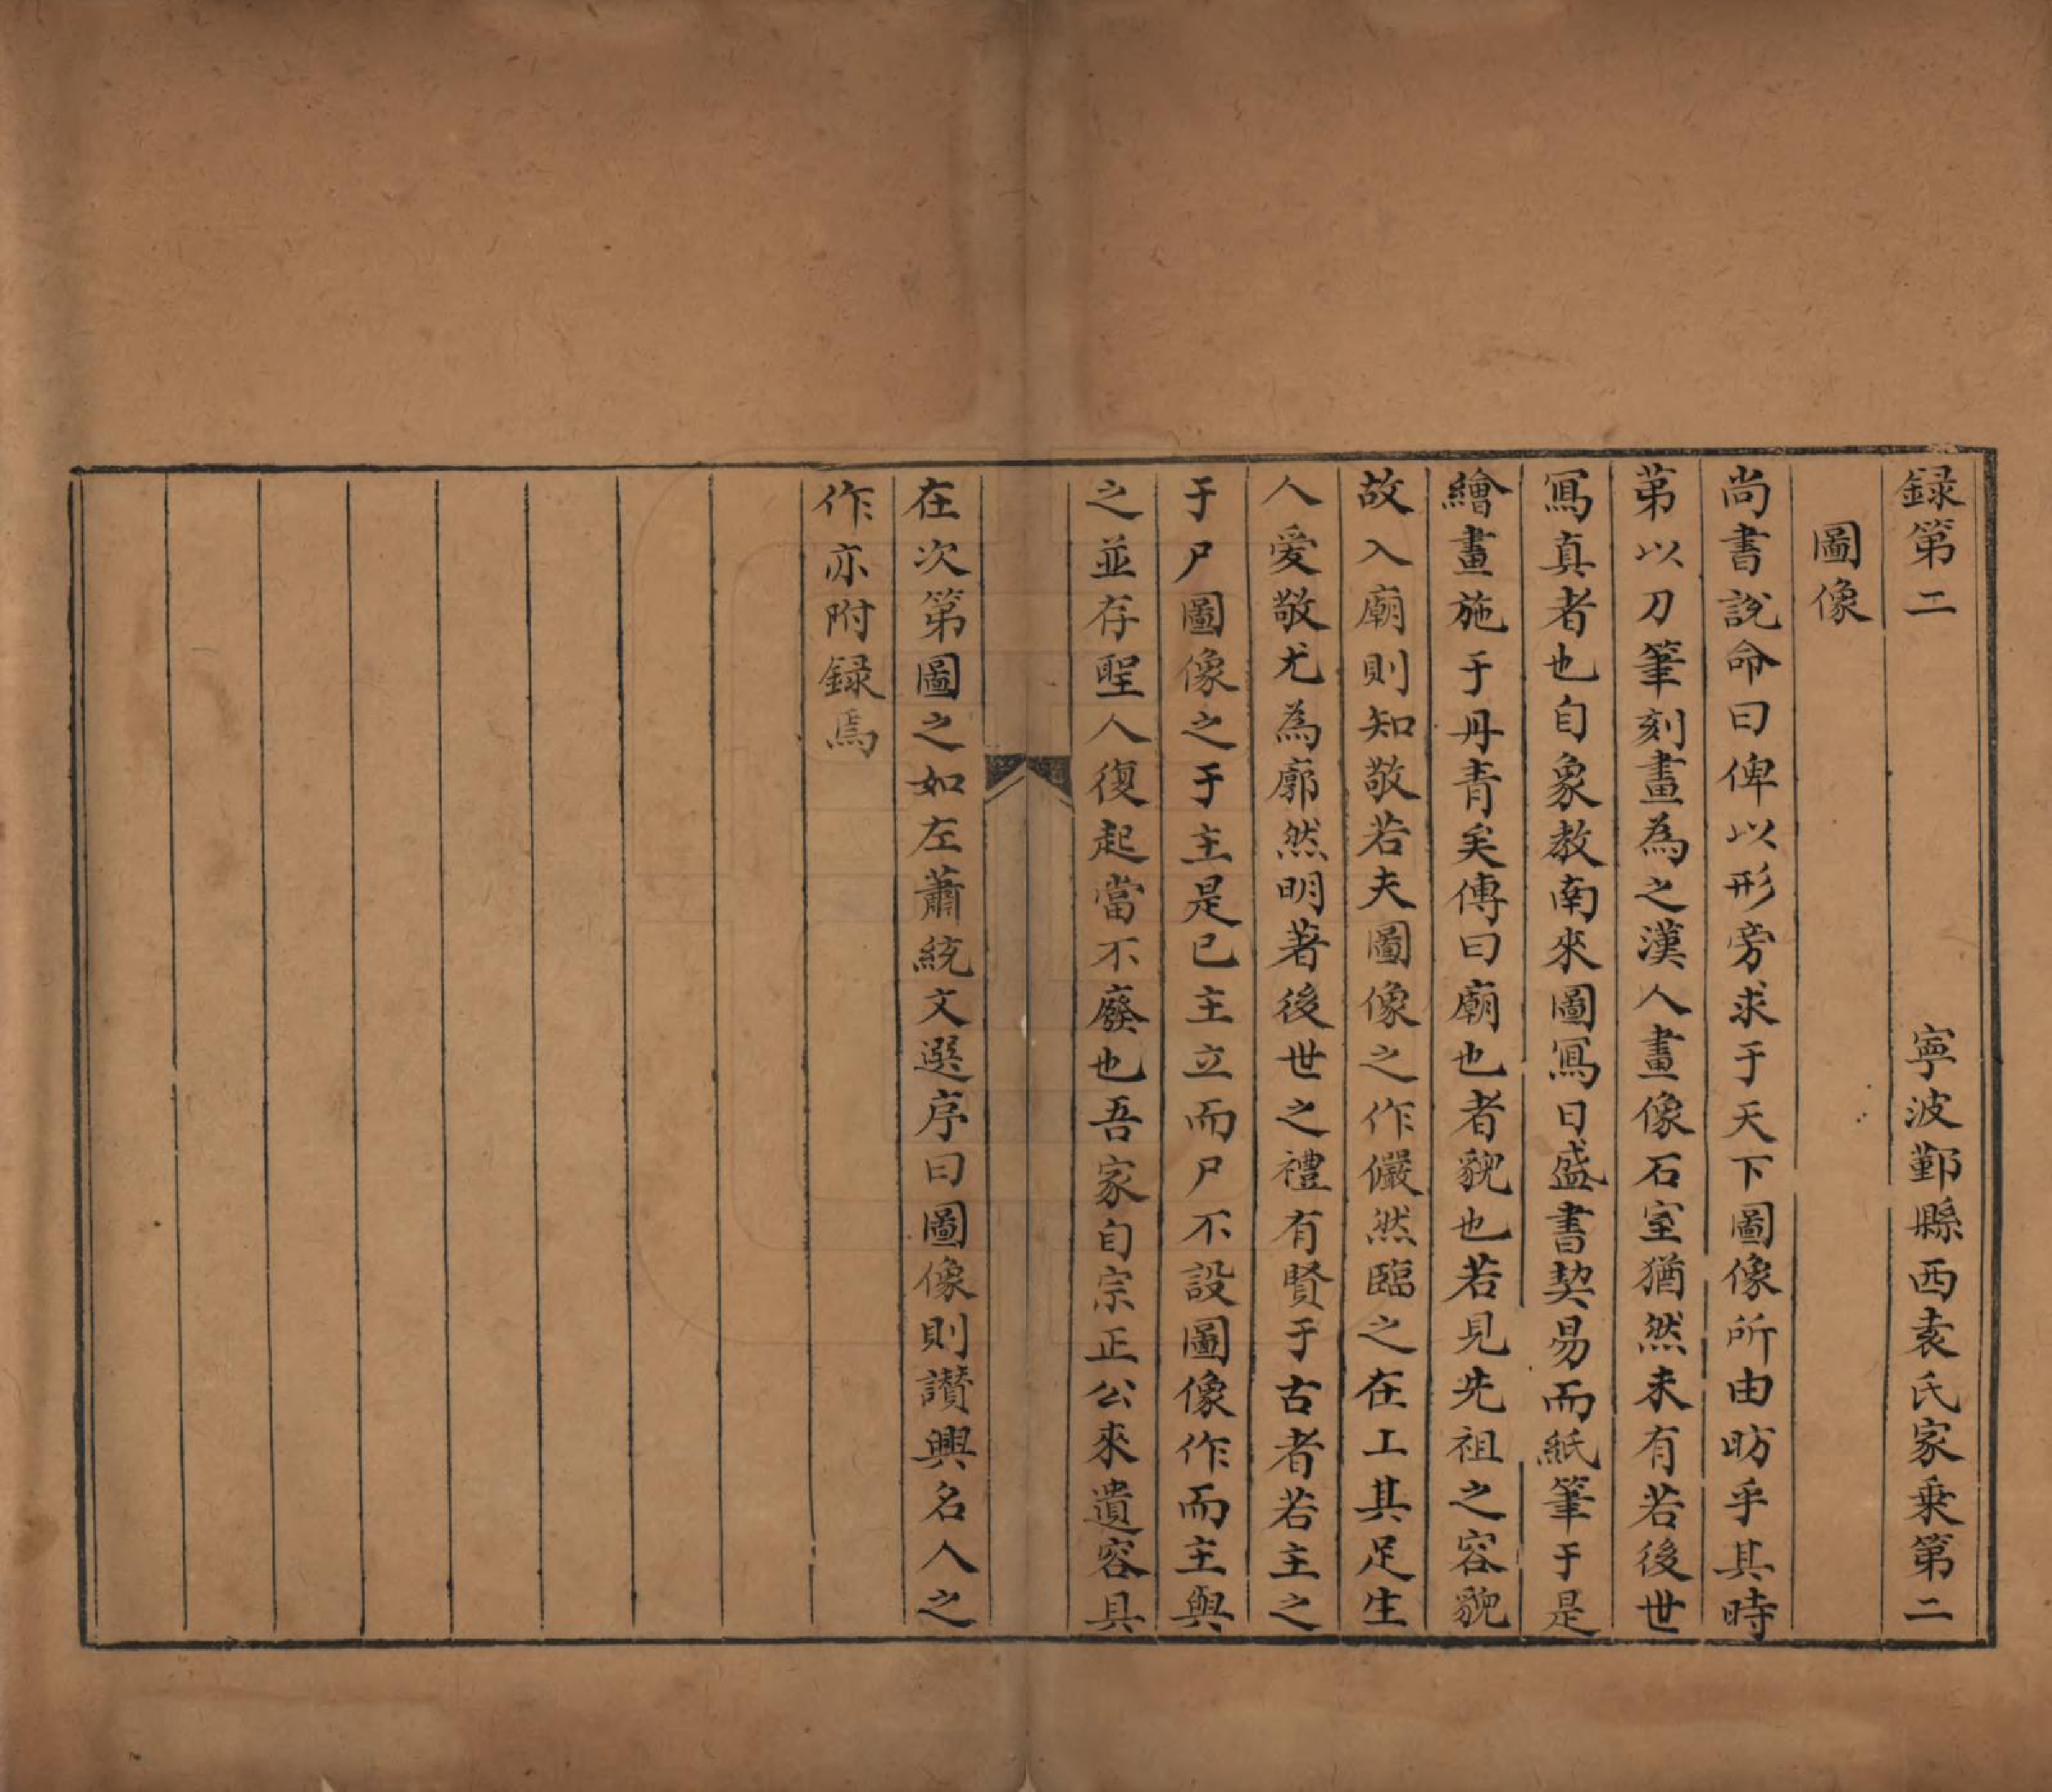 録第二 寧波鄞縣西袁氏家乗第二
圖像
尚書説命曰俾以形旁求于天下圖像所由昉乎其時
第以刀筆刻畫為之漢人畫像石室猶然未有若後世
寫真者也自象教南來圖寫日盛書契易而紙筆于是
繪畫施于丹青矣傳曰廟也者貌也若見先祖之容貌
故入廟則知敬若夫圖像之作儼然臨之在工其足生
人愛敬尤為廓然明著後世之禮有賢于古者若主之
于尸圖像之于主是已主立而尸不設圖像作而主與
之並存聖人復起當不廢也吾家自宗正公來遺容具
在次第圖之如左蕭統文選序曰圖像則讃興名人之
作亦附録焉